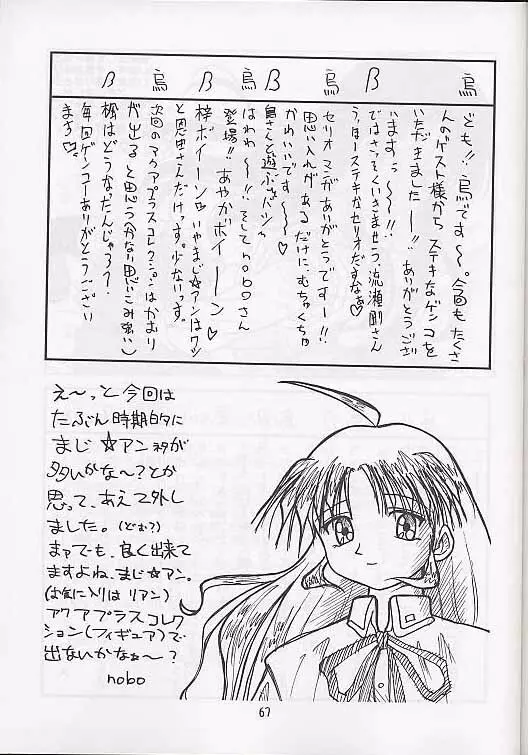 烏 β 烏 β烏 β 烏 β
ども!!烏です〜。今回もたくさ
んのゲスト様からステキなゲンコを
いただきましたー!!ありがとうござ
いますぅ〜!!
ではさっそくいきませう。流瀬剛さん
う、ほーステキなセリオだすなぁ♡
セリオマンガありがとうですー!!
思い入れがあるだけにむちゃくちゃ
かわいいです〜〜♡
島さんと遊ぶぎバシャ
はわわ〜!!そしてnoboさん
登場!!あやかボイーン
梓ボイーン♡いやまじ☆アンはワシ
と恩田さんだけっす。少ないっす。
次回のアクアプラスコレクションはかおり
が出ると思う(分ない思いこみ強い)
楓はどうなったんじゃろ?
毎回ゲンコーありがとうござい
まする♡
え〜っと今回は
たぶん時期的に
まじ☆アンネタが
多いかな〜?とか
思って、あえて外し
ました。(どむ?)
まァでも、良く出来て
ますよね、まじ☆アン。
(お気に入りはリアン)
アクアプラスコレク
ション(フィギュア)で
出ないかなぁ〜?
nobo
67